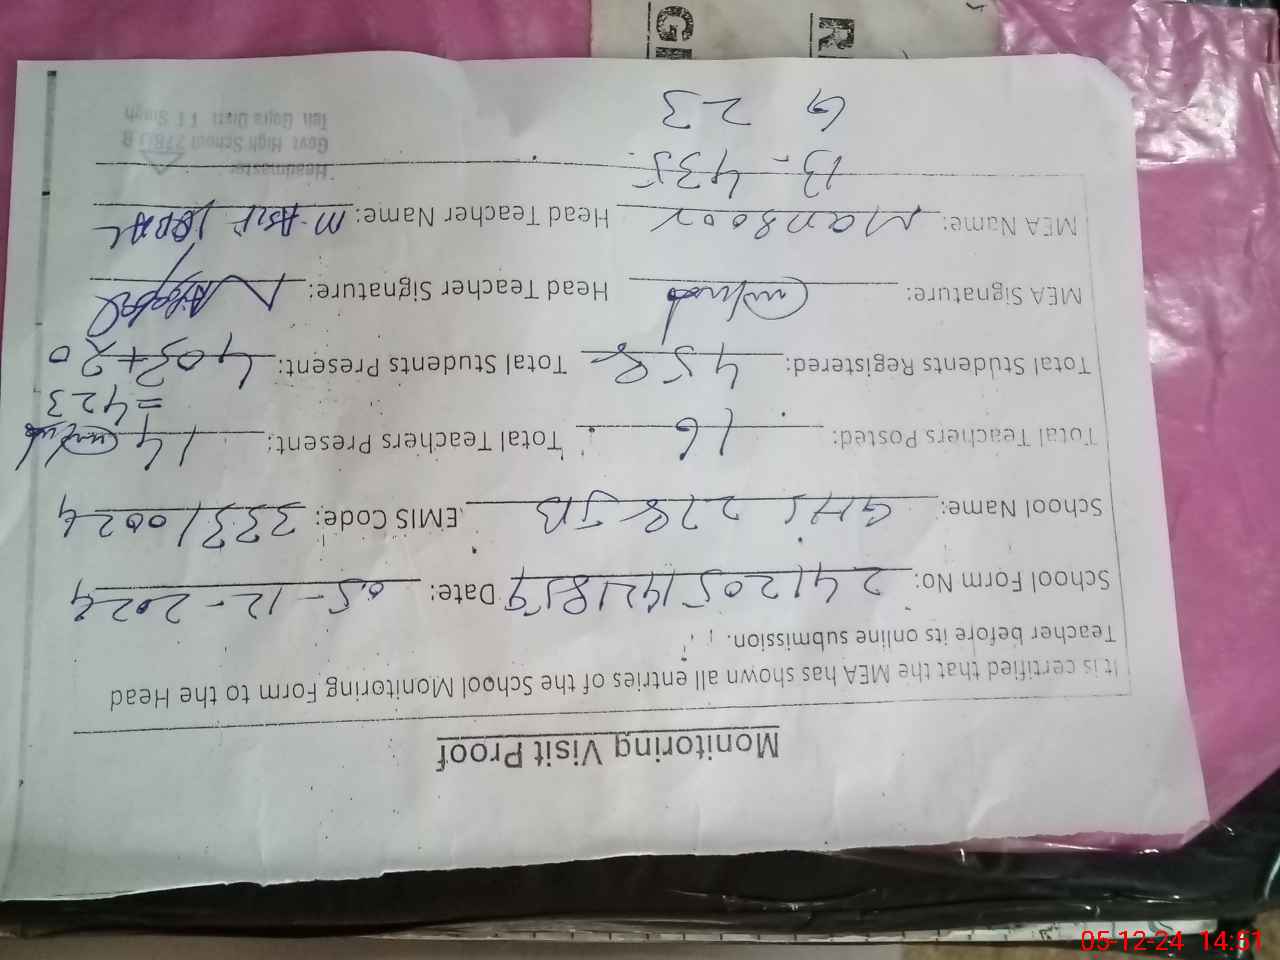 Monitoring Visit Proof
It is certified that the MEA has shown all entries of the School Monitoring Form to the Head
Teacher before its online submission.
School Form No: 2412051421859 Date: 05-12-2024
School Name: GHS 278 JB EMIS Code: 33310024
Total Teachers Posted: 16 Total Teachers Present: 14
=423
Total Students Registered: 458 Total Students Present: 403+20
MEA Signature: Head Teacher Signature:
MEA Name: Mansoor Head Teacher Name: M. ASIF IQBAL
B- 435
G 23
Headmaster
Govt High School 278 J B
Teh Gojra Distt T T Singh
05-12-24 14:51